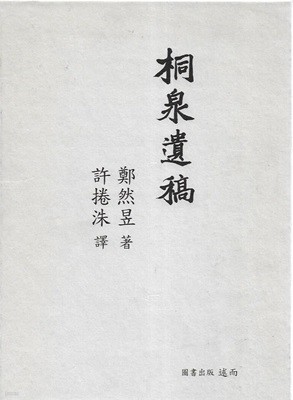 桐泉遺稿
鄭然昱 著
許捲洙 譯
圖書出版 述而